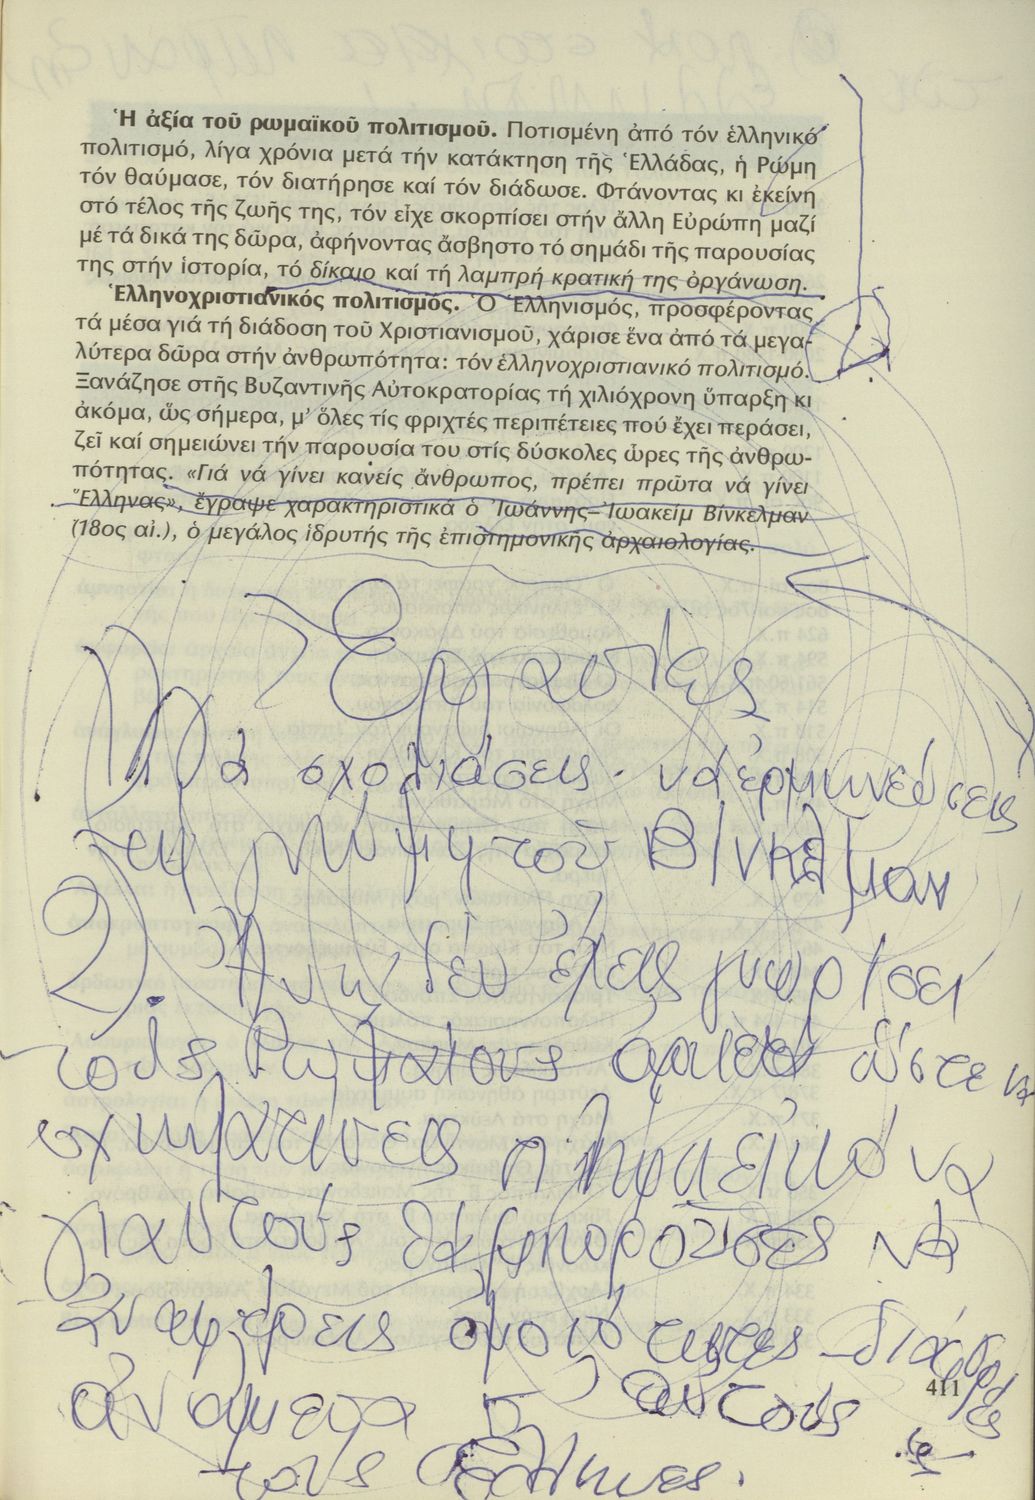 Ἡ ἀξία τοῦ ρωμαϊκοῦ πολιτισμοῦ. Ποτισμένη ἀπό τόν ἑλληνικό
πολιτισμό, λίγα χρόνια μετά τήν κατάκτηση τῆς Ἑλλάδας, ἡ Ρώμη
τόν θαύμασε, τόν διατήρησε καί τόν διάδωσε. Φτάνοντας κι ἐκείνη
στό τέλος τῆς ζωῆς της, τόν εἶχε σκορπίσει στήν ἄλλη Εὐρώπη μαζί
μέ τά δικά της δῶρα, ἀφήνοντας ἄσβηστο τό σημάδι τῆς παρουσίας
της στήν ἱστορία, τό δίκαιο καί τή λαμπρή κρατική της ὀργάνωση.
Ἑλληνοχριστιανικός πολιτισμός. Ὁ Ἑλληνισμός, προσφέροντας
τά μέσα γιά τή διάδοση τοῦ Χριστιανισμοῦ, χάρισε ἕνα ἀπό τά μεγα-
λύτερα δῶρα στήν ἀνθρωπότητα: τόν ἑλληνοχριστιανικό πολιτισμό.
Ξανάζησε στῆς Βυζαντινῆς Αὐτοκρατορίας τή χιλιόχρονη ὕπαρξη κι
ἀκόμα, ὥς σήμερα, μ' ὅλες τίς φριχτές περιπέτειες πού ἔχει περάσει,
ζεῖ καί σημειώνει τήν παρουσία του στίς δύσκολες ὧρες τῆς ἀνθρω-
πότητας. «Γιά νά γίνει κανείς ἄνθρωπος, πρέπει πρῶτα νά γίνει
Ἕλληνας», ἔγραψε χαρακτηριστικά ὁ Ἰωάννης-Ἰωακείμ Βίνκελμαν
(18ος αἰ.), ὁ μεγάλος ἱδρυτής τῆς ἐπιστημονικῆς ἀρχαιολογίας.
Ἐργασίες
Νά σχολιάσεις - νά ἑρμηνεύσεις
τή γνώμη τοῦ Βίνκελμαν
2). Ἄν καί δέν ἔχεις γνωρίσει
τούς Ρωμαίους ἀρκετά ὥστε νά
σχηματίσεις πλήρη εἰκόνα
γι αὐτούς θά μποροῦσες νά
ἀναφέρεις ὁμοιότητες - διαφορές
ἀνάμεσα σ' αὐτούς
τούς Ἕλληνες.
411